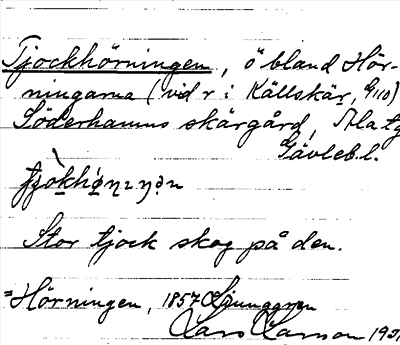 Tjockhörningen, ö bland Hör-
ningarna (vid r i Källskär, G110)
Söderhamns skärgård, Ala tg
Gävleb.l.
Stor tjock skog på den.
=Hörningen, 1857 Ljunggren
Lars Larson 19